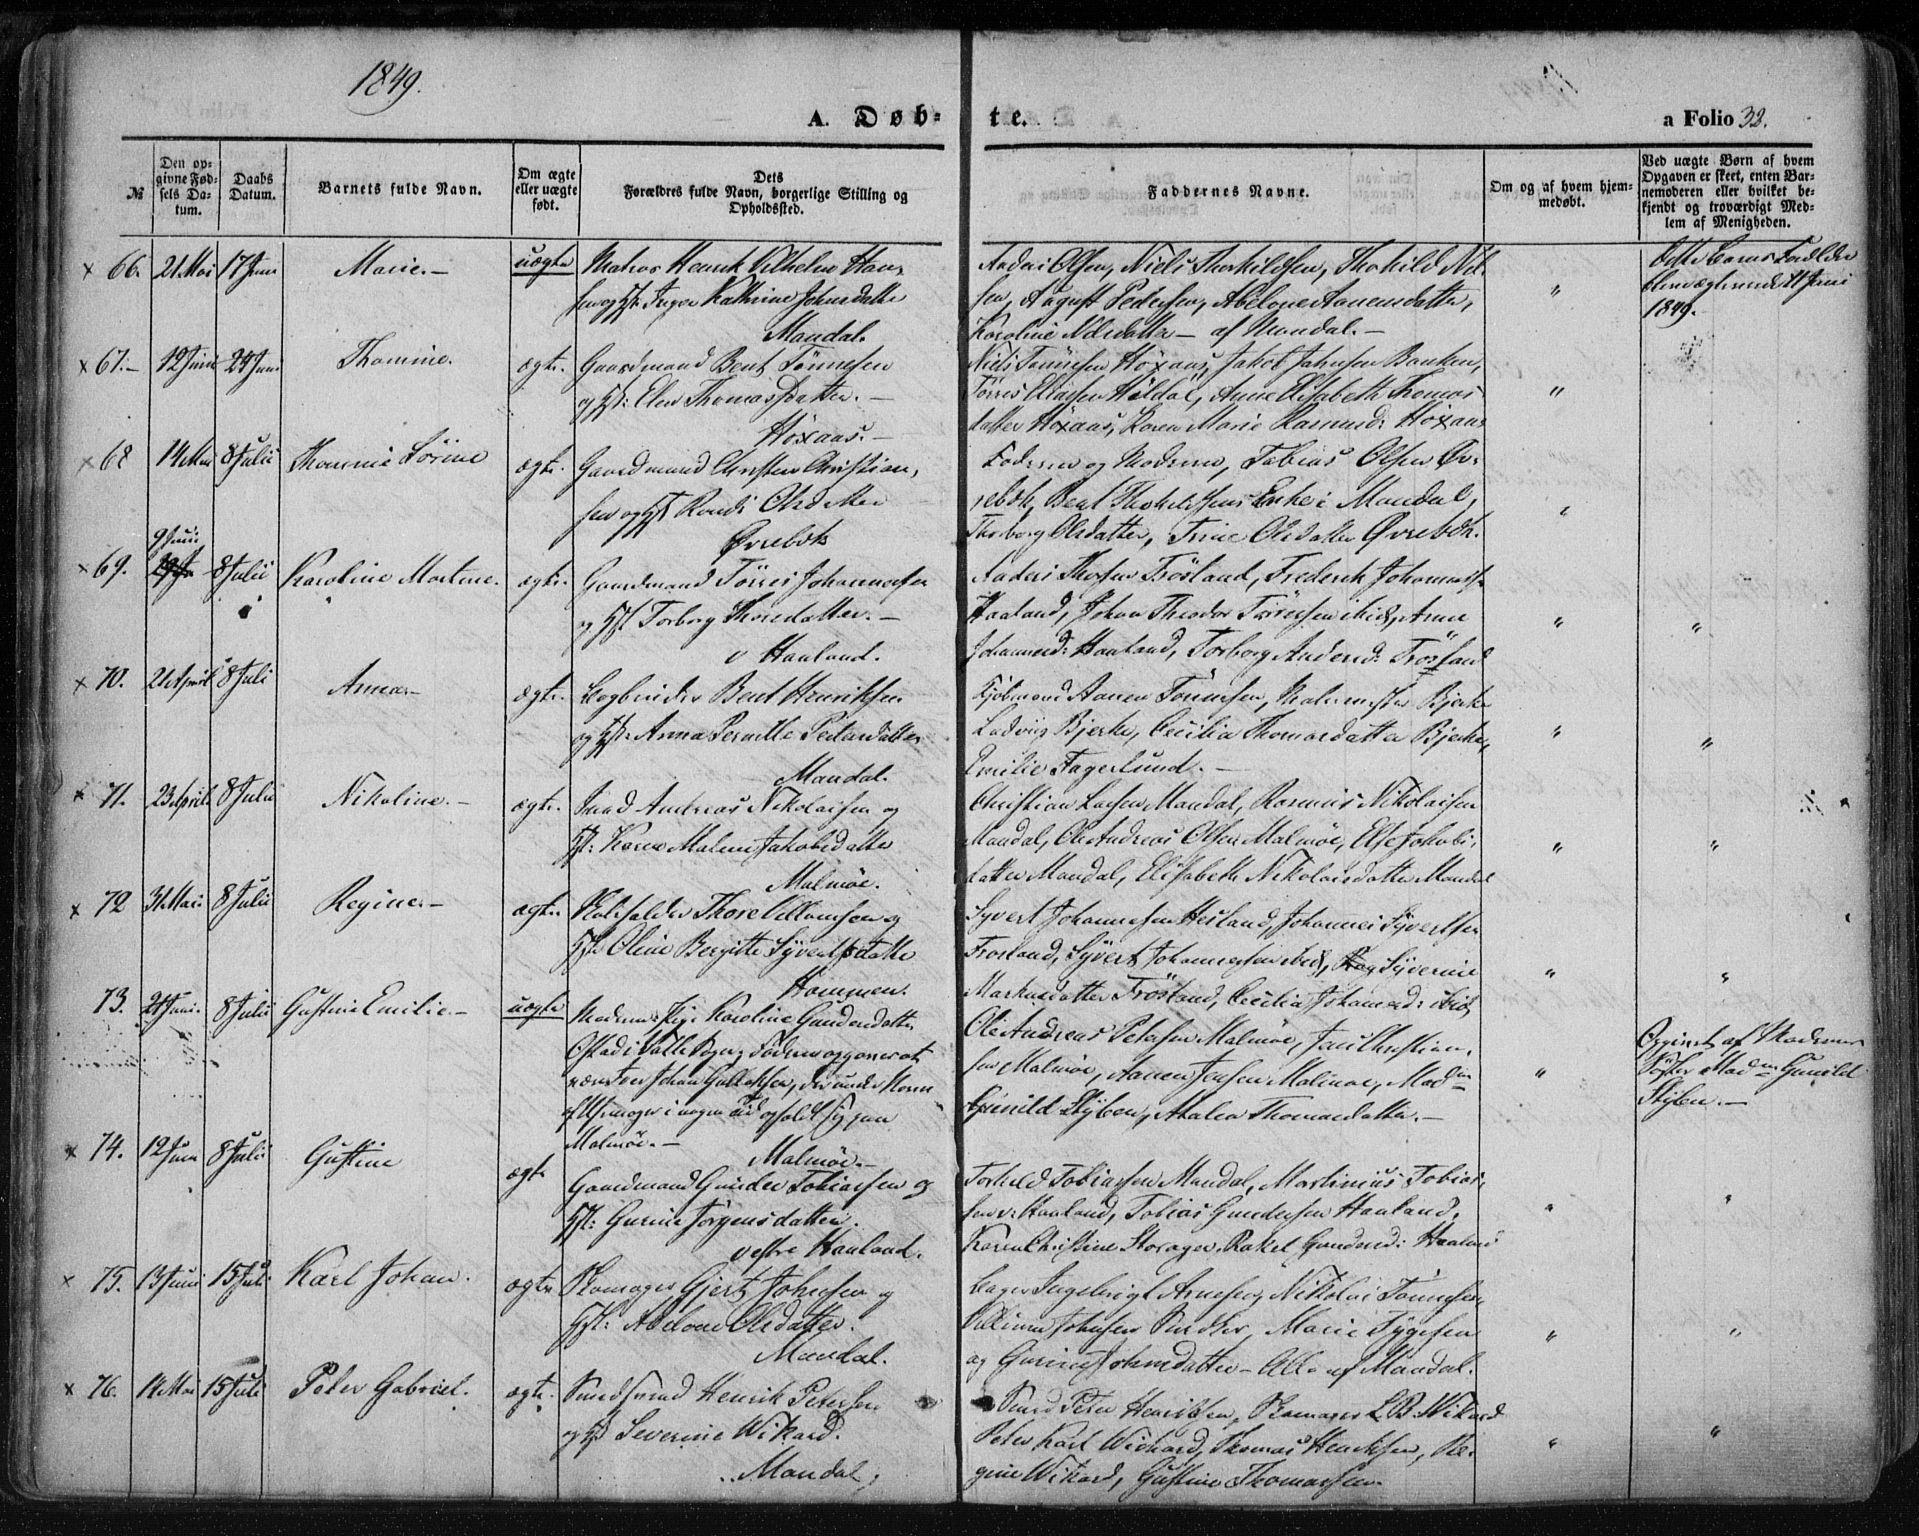 1849.
A. Døb-
te.
a Folio 32.
№
Den op-
givne Fød-
sels Da-
tum.
Daabs
Datum.
Barnets fulde Navn.
Om ægte
eller uægte
født.
Dets
Forældres fulde Navn, borgerlige Stilling og
Opholdssted.
Faddernes Navne.
Om og af hvem hjem-
medøbt.
Ved uægte Børn af hvem
Opgaven er skeet, enten Bar-
nemoderen eller hvilket be-
kjendt og troværdigt Med-
lem af Menigheden.
× 66. 21 Mai 17 Juni Marie.- uægte Matros Henrik Vilhelm Han-
sen og Hst. Inger Kathrine Johnsdatter
Mandal.
Anders Olsen, Niels Thorkildsen, Thorkild Nil-
sen, August Pedersen, Abelone Aanensdatter,
Karoline Nilsdatter - af Mandal.-
"
Dette Barns Forældre
bleve ægteviede 21 Juni
1849.
× 67.- 12 Juni 24 Juni Thomine. ægte. Gaardmand Bent Tønnesen
og Hst: Elen Thomasdatter.-
Høxaas.-
Niels Tønnesen Høxaas, Jakob Jahnsen Banken,
Tørres Eliasen Høldal, Anne Elisabeth Thomas-
datter Høxaas, Karen Marie Rasmusd: Høxaas
"
× 68 14 Mai 8 Julii Thommine Sørine ægte. Gaardmand Christen Christian-
sen og Hst Randi Olsdatter
Øvrebøk
Faderen og Moderen, Tobias Olsen Øv-
rebøk, Bent Thorkildsens Enke i Mandal,
Thorborg Olsdatter, Trine Olsdatter Øvrebøk.
"
9 Juni
× 69. 8 Julii Karoline Martine. ægte. Gaardmand Tørres Johannesen
og Hst Torborg Thoresdatter.-
v Haaland.
Anders Thorsen Trösland, Frederik Johanness.
Haaland, Johan Theodor Tørresen ibid, Anne
Johannesd: Haaland, Torborg Andersd: Trösland
" "
× 70. 21 April 8 Juli Anna.- ægte. Bogbinder Bent Henriksen
og Hst: Anna Pernille Pedersdatter
Mandal.
Kjøbmand Aanen Tønnesen, Malermester Bjerke
Ludvig Bjerke, Cecilia Thomasdatter Bjerke,
Emilie Fagerlund.-
" "
× 71. 23 April 8 Julii Nikoline.- ægte. Smed Andreas Nikolaisen og
Hst: Karen Malene Jakobsdatter
Malmøe.
Christian Larsen Mandal, Rasmus Nikolaisen
Mandal, Ole Andreas Olsen Malmøe, Else Jakobs-
datter Mandal, Elisabeth Nikolaisdatter Mandal
" "
× 72 31 Mai 8 Julii Regine.- ægte. Thore Villumsen og
Hst. Oline Bergitte Syvertsdatter
Hommen.
Syvert Johannesen Hesland, Johannes Syvertsen
Trosland, Syvert Johannesen ibid, Syverine
Markusdatter Trösland, Cecilia Johannesd: ibid
" "
73. 21 Juni. 8 Julii Gustine Emilie.- uægte Moderen: Pige Karoline Gundersdatter
Opstad i Valle Faderen opgives at
være Johan Gullaksen, der under Navn
af Skomager i nogen Tid opholdt sig paa
Malmøe.-
Malmøe.-
Ole Andreas Petersen Malmøe, Jan Christian-
sen Malmøe, Aanen Jensen Malmøe, Madm
Gunild Stÿben, Athalia Thomasdatter.-
"
Opgivet af Moderens
Søster Madm Gunild
Stÿben.-
× 74. 12 Juni 8 Julii Gustine ægte Gaardmand Gunder Tobiassen og
Hst: Gurine Jørgensdatter.
vestre Haaland.
Torkild Tobiassen Mandal, Martinius Tobias-
sen v: Haaland, Tobias Gundersen Haaland,
Karen Christine Storager, Rakel Gundersd: Haaland
" "
× 75. 13 Juni 15 Juli Karl Johan. ægte Skomager Gjert Johnsen og
Hst: Abelone Olsdatter.
Mandal.
Bager Ingebrigt Arneberg, Nikolai Tönnesen,
Villum Johnsen Snedker, Marie Tygesen
og Gurine Johnsdatter - Alle af Mandal.
" "
× 76. 14 Mai 15 Juli Peter Gabriel. ægte. Smedsvend Henrik Petersen
og Hst Severine Wikard.
Mandal.
Smed Peter Henriksen, Skomager L.B. Wikard
Peter Karl Wichard, Thomas Henriksen, Re-
gine Wikard, Gustine Thomassen.
" "